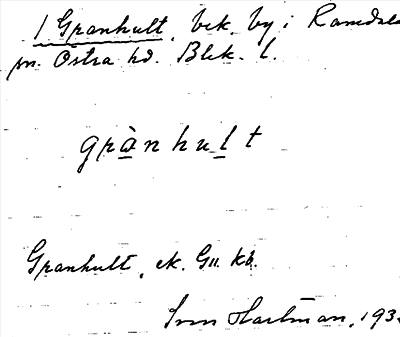 1 Granhult, bek. by i Ramdala
sn. Östra hd. Blek. l.
grànhult
Granhult, ek. G11. kb.
Sven Hartman, 193